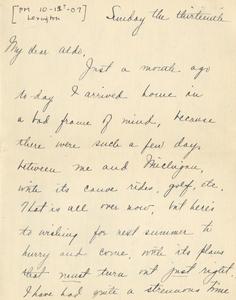 [PM 10-13-07]
Lexington
Sunday the thirteenth
My dear Aldo,
Just a month ago
to-day I arrived home in
a bad frame of mind, because
there were such a few days
between me and Michigan,
with its canoe rides, golf, etc.
That is all over now, but here's
to wishing for next summer to
hurry and come, with its plans
that must turn out just right.
I have had quite a strenuous time